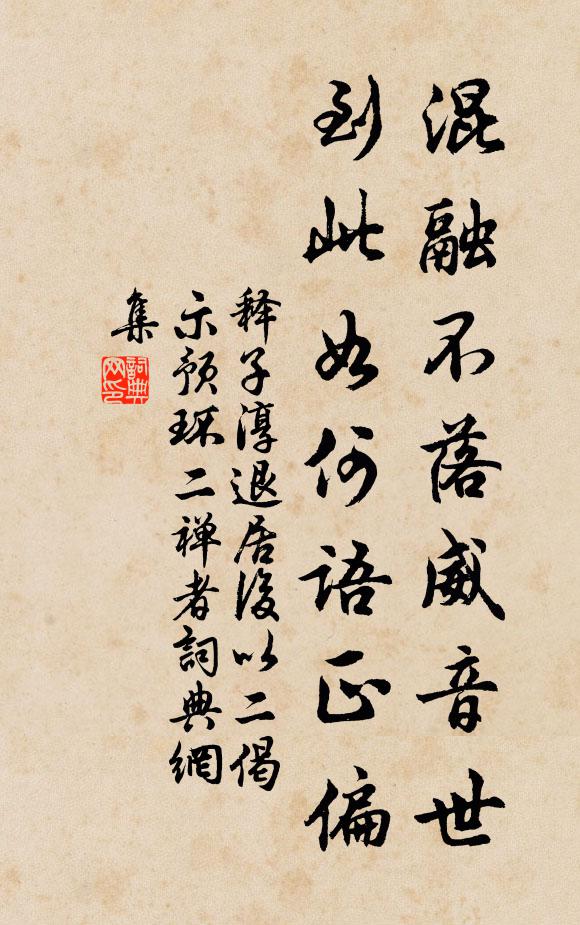 混融不落威音世
到此如何語正偏
释子淳退居後以二偈
示预琛二禅者詞典網
集
詞典
网印